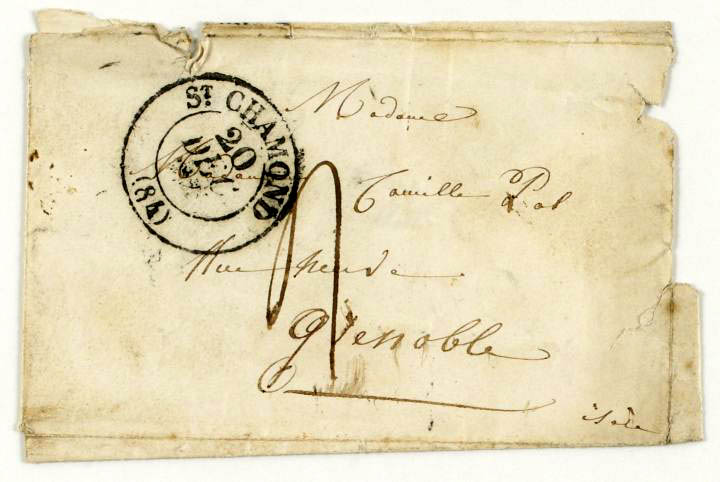 ST. CHAMOND
20
(84)
Madame
Camille
Rue neuve
Grenoble
isère